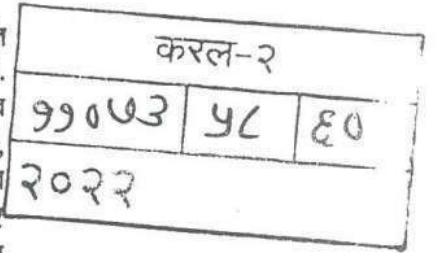 करल-२
११०७३ ५८ ६०
२०२२